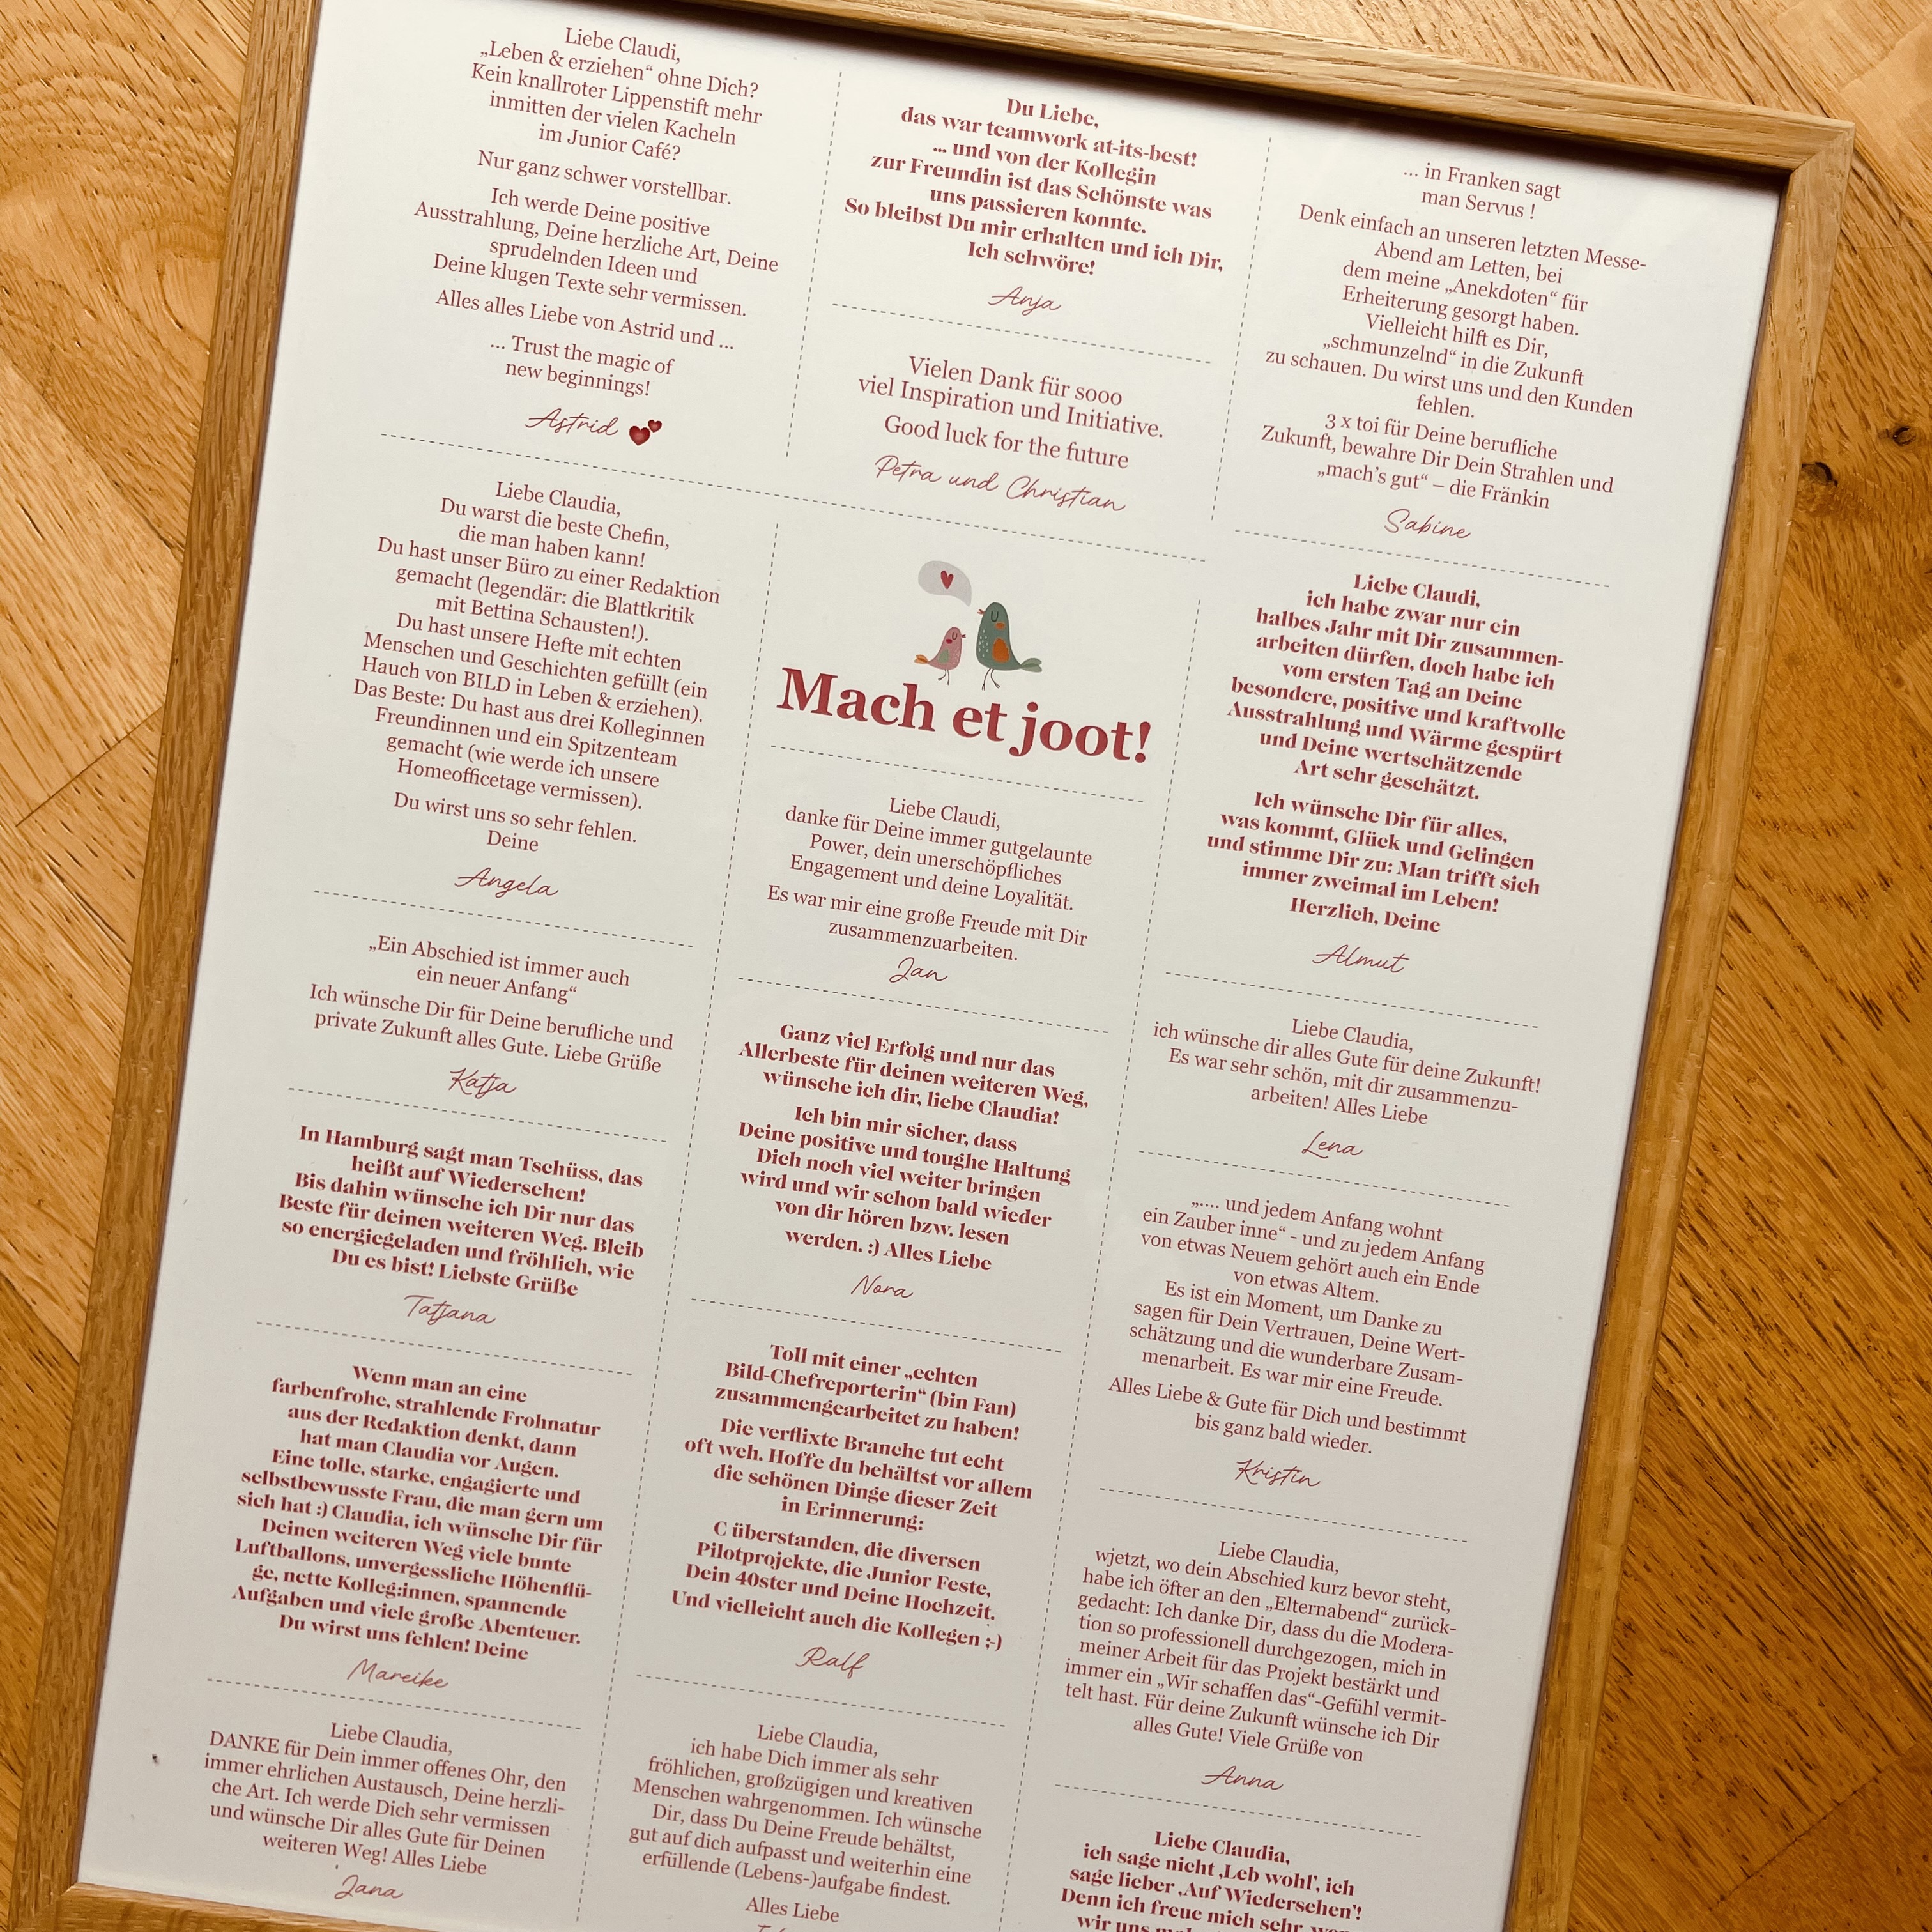 Liebe Claudi,
„Leben & erziehen“ ohne Dich?
Kein knallroter Lippenstift mehr
inmitten der vielen Kacheln
im Junior Café?
Nur ganz schwer vorstellbar.
Ich werde Deine positive
Ausstrahlung, Deine herzliche Art, Deine
sprudelnden Ideen und
Deine klugen Texte sehr vermissen.
Alles alles Liebe von Astrid und ...
... Trust the magic of
new beginnings!
Astrid
Liebe Claudia,
Du warst die beste Chefin,
die man haben kann!
Du hast unser Büro zu einer Redaktion
gemacht (legendär: die Blattkritik
mit Bettina Schausten!).
Du hast unsere Hefte mit echten
Menschen und Geschichten gefüllt (ein
Hauch von BILD in Leben & erziehen).
Das Beste: Du hast aus drei Kolleginnen
Freundinnen und ein Spitzenteam
gemacht (wie werde ich unsere
Homeofficetage vermissen).
Du wirst uns so sehr fehlen.
Deine
Angela
„Ein Abschied ist immer auch
ein neuer Anfang“
Ich wünsche Dir für Deine berufliche und
private Zukunft alles Gute. Liebe Grüße
Katja
In Hamburg sagt man Tschüss, das
heißt auf Wiedersehen!
Bis dahin wünsche ich Dir nur das
Beste für deinen weiteren Weg. Bleib
so energiegeladen und fröhlich, wie
Du es bist! Liebste Grüße
Tatjana
Wenn man an eine
farbenfrohe, strahlende Frohnatur
aus der Redaktion denkt, dann
hat man Claudia vor Augen.
Eine tolle, starke, engagierte und
selbstbewusste Frau, die man gern um
sich hat :) Claudia, ich wünsche Dir für
Deinen weiteren Weg viele bunte
Luftballons, unvergessliche Höhenflü-
ge, nette Kolleg:innen, spannende
Aufgaben und viele große Abenteuer.
Du wirst uns fehlen! Deine
Mareike
Liebe Claudia,
DANKE für Dein immer offenes Ohr, den
immer ehrlichen Austausch, Deine herzli-
che Art. Ich werde Dich sehr vermissen
und wünsche Dir alles Gute für Deinen
weiteren Weg! Alles Liebe
Jana
Du Liebe,
das war teamwork at-its-best!
... und von der Kollegin
zur Freundin ist das Schönste was
uns passieren konnte.
So bleibst Du mir erhalten und ich Dir,
Ich schwöre!
Anja
Vielen Dank für sooo
viel Inspiration und Initiative.
Good luck for the future
Petra und Christian
Mach et joot!
Liebe Claudi,
danke für Deine immer gutgelaunte
Power, dein unerschöpfliches
Engagement und deine Loyalität.
Es war mir eine große Freude mit Dir
zusammenzuarbeiten.
Jan
Ganz viel Erfolg und nur das
Allerbeste für deinen weiteren Weg,
wünsche ich dir, liebe Claudia!
Ich bin mir sicher, dass
Deine positive und toughe Haltung
Dich noch viel weiter bringen
wird und wir schon bald wieder
von dir hören bzw. lesen
werden. :) Alles Liebe
Nora
Toll mit einer „echten
Bild-Chefreporterin“ (bin Fan)
zusammengearbeitet zu haben!
Die verflixte Branche tut echt
oft weh. Hoffe du behältst vor allem
die schönen Dinge dieser Zeit
in Erinnerung:
C überstanden, die diversen
Pilotprojekte, die Junior Feste,
Dein 40ster und Deine Hochzeit.
Und vielleicht auch die Kollegen ;-)
Ralf
Liebe Claudia,
ich habe Dich immer als sehr
fröhlichen, großzügigen und kreativen
Menschen wahrgenommen. Ich wünsche
Dir, dass Du Deine Freude behältst,
gut auf dich aufpasst und weiterhin eine
erfüllende (Lebens-)aufgabe findest.
Alles Liebe
... in Franken sagt
man Servus !
Denk einfach an unseren letzten Messe-
Abend am Letten, bei
dem meine „Anekdoten“ für
Erheiterung gesorgt haben.
Vielleicht hilft es Dir,
„schmunzelnd“ in die Zukunft
zu schauen. Du wirst uns und den Kunden
fehlen.
3 x toi für Deine berufliche
Zukunft, bewahre Dir Dein Strahlen und
„mach’s gut“ – die Fränkin
Sabine
Liebe Claudi,
ich habe zwar nur ein
halbes Jahr mit Dir zusammen-
arbeiten dürfen, doch habe ich
vom ersten Tag an Deine
besondere, positive und kraftvolle
Ausstrahlung und Wärme gespürt
und Deine wertschätzende
Art sehr geschätzt.
Ich wünsche Dir für alles,
was kommt, Glück und Gelingen
und stimme Dir zu: Man trifft sich
immer zweimal im Leben!
Herzlich, Deine
Almut
Liebe Claudia,
ich wünsche dir alles Gute für deine Zukunft!
Es war sehr schön, mit dir zusammenzu-
arbeiten! Alles Liebe
Lena
„.... und jedem Anfang wohnt
ein Zauber inne“ - und zu jedem Anfang
von etwas Neuem gehört auch ein Ende
von etwas Altem.
Es ist ein Moment, um Danke zu
sagen für Dein Vertrauen, Deine Wert-
schätzung und die wunderbare Zusam-
menarbeit. Es war mir eine Freude.
Alles Liebe & Gute für Dich und bestimmt
bis ganz bald wieder.
Kristin
Liebe Claudia,
wjetzt, wo dein Abschied kurz bevor steht,
habe ich öfter an den „Elternabend“ zurück-
gedacht: Ich danke Dir, dass du die Modera-
tion so professionell durchgezogen, mich in
meiner Arbeit für das Projekt bestärkt und
immer ein „Wir schaffen das“-Gefühl vermit-
telt hast. Für deine Zukunft wünsche ich Dir
alles Gute! Viele Grüße von
Anna
Liebe Claudia,
ich sage nicht ‚Leb wohl‘, ich
sage lieber ‚Auf Wiedersehen‘!
Denn ich freue mich sehr, wenn
wir uns